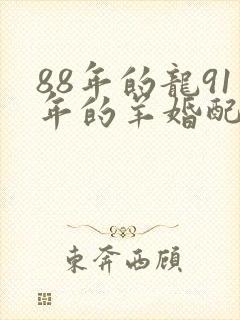 88年的龍91
年的羊婚配
東奔西顧